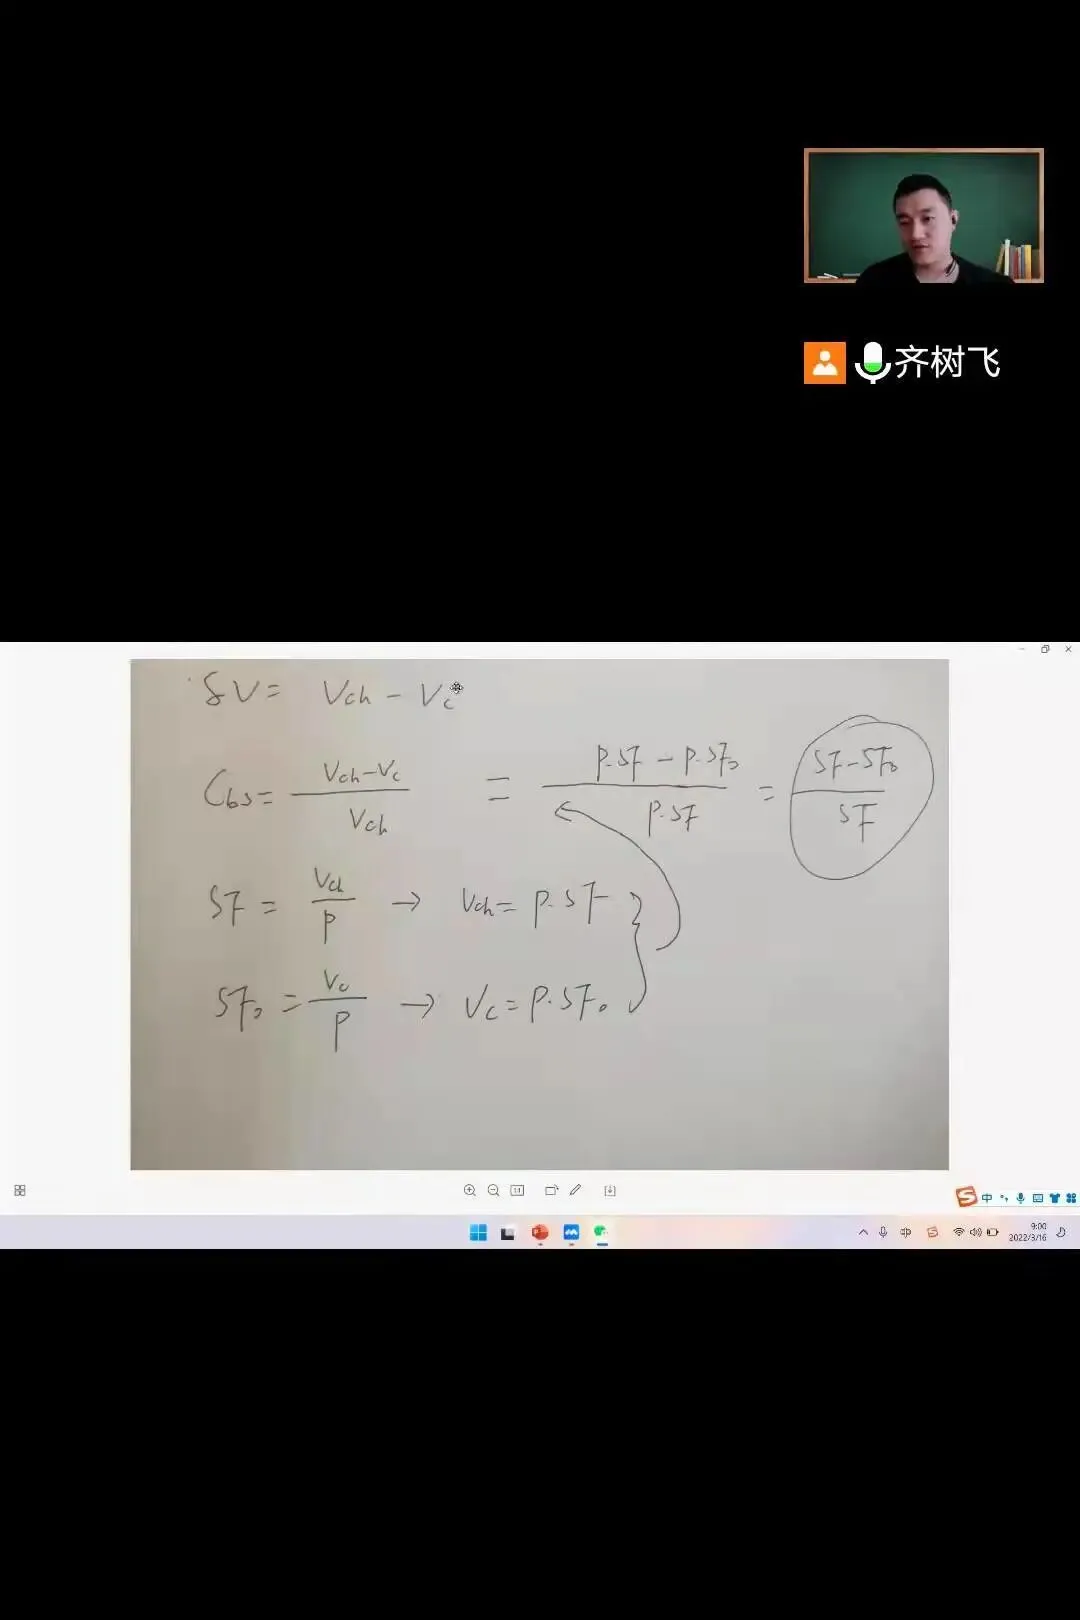 齐树飞
δV = Vch - Vc
Cbs = (Vch - Vc) / Vch = (P·SF - P·SF₀) / (P·SF) = (SF - SF₀) / SF
SF = Vch / P → Vch = P·SF
SF₀ = Vc / P → Vc = P·SF₀
1:1
中
9:00
2022/3/16